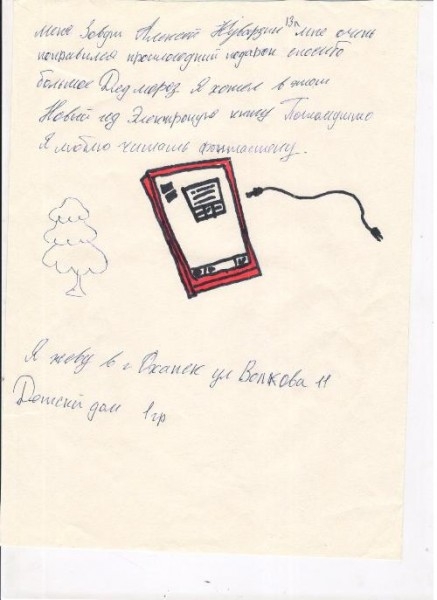 меня Зовут Алексей 13л мне очень
понравился прошлогодний подарок спасибо
большое Дед мороз Я хотел в этот
Новый год Электронную книгу Потомучто
Я люблю читать фантастику.
Я живу в г Оханск ул Волкова 11
Детский дом 1 гр